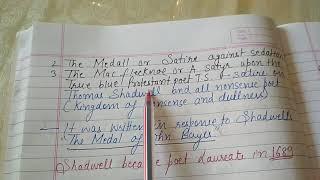 2 The Medall or Satire against sedation
3 The Mac flecknoe or A satyr upon the
True blue Protestant poet T.S. → satire on
Thomas Shadwell and all nonsense poet
(Kingdom of nonsense and dullness)
It was written in response to Shadwell's
The Medal of John Bayes
Shadwell became poet Laureate in 1689